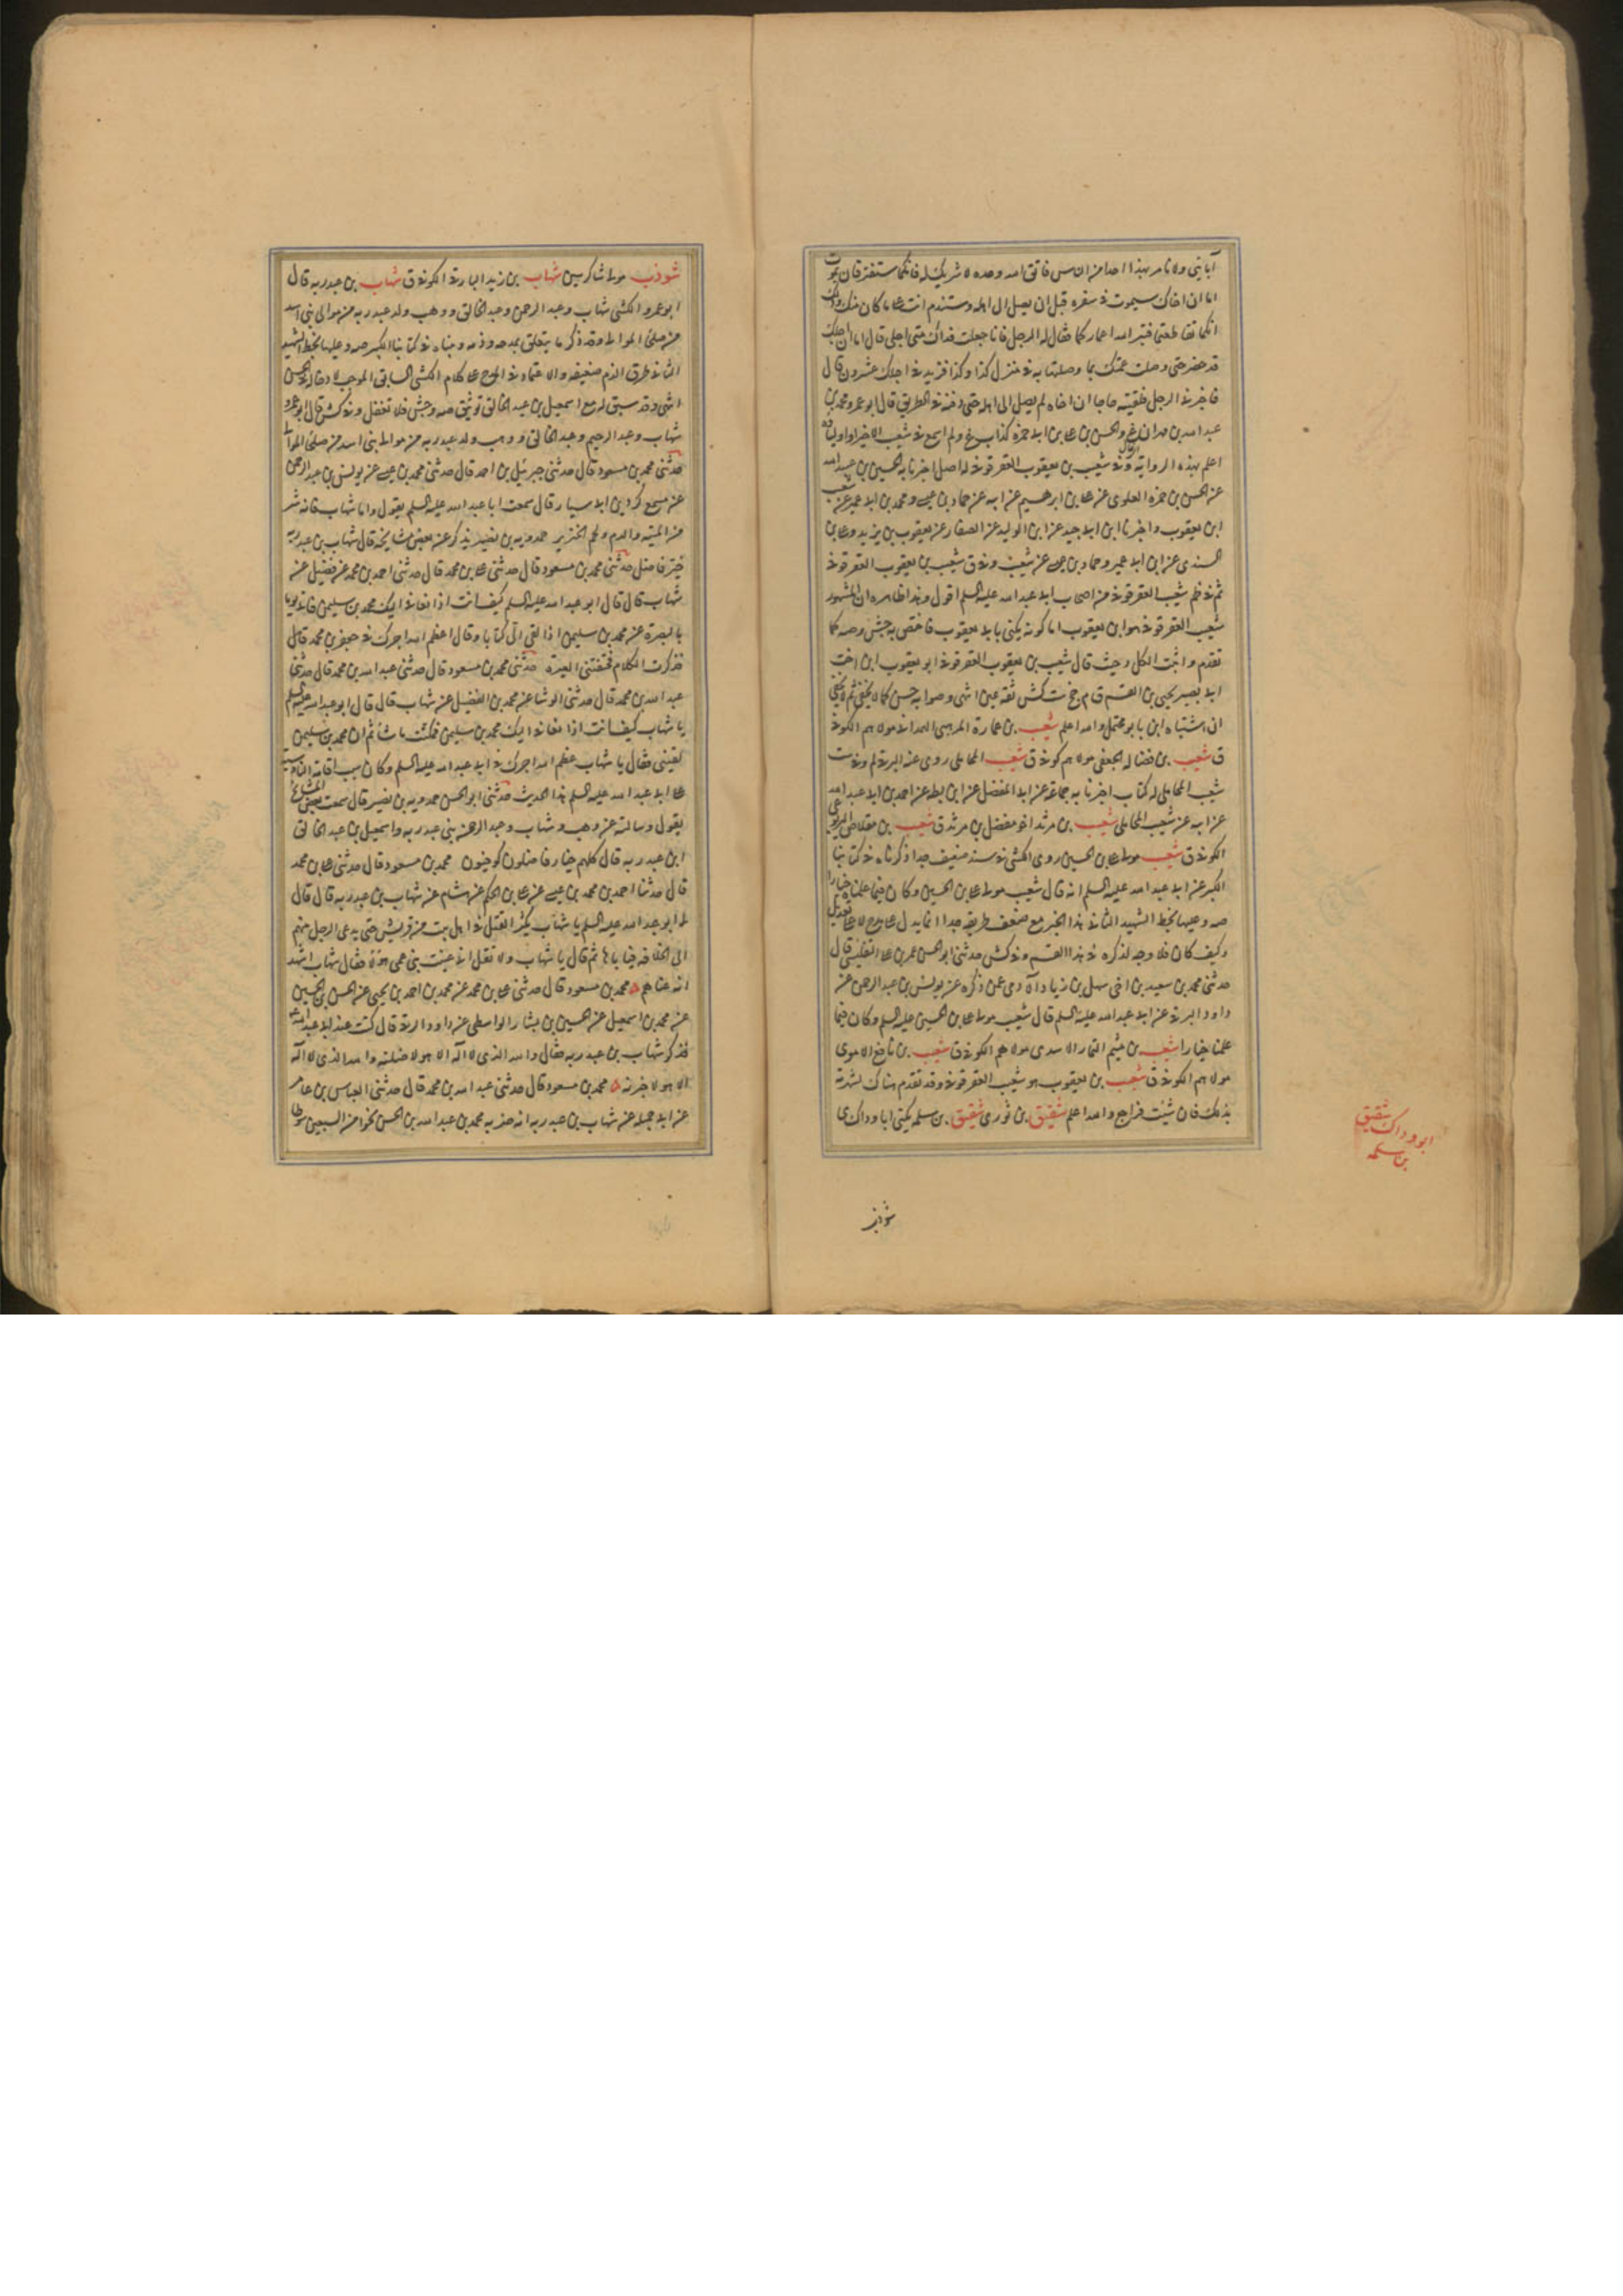 آبائي ولا نامر بهذا احدا من الناس فاتق الله وحده لا شريك له فانكما ستفترقان بموت
اما ان اخاك سيموت في سفره قبل ان يصل الى اهله وستندم انت على ما كان منك وذلك
انكما تقاطعتما فبتر الله اعماركما فقال له الرجل فانا جعلت فداك متى اجلي قال اما ان اجلك
قد حضر حتى وصلت عمتك بما وصلتها به في منزل كذا وكذا فزيد في اجلك عشرون قال
فاخبرني الرجل فلقيته حاجا ان اخاه لم يصل الى اهله حتى دفنه في الطريق قال ابو عمرو محمد بن
عبد الله بن مهران غ والحسن بن علي بن ابي حمزة كذاب غ ولم اسمع في شعيب الا خيرا واولياؤه
اعلم بهذه الرواية وفي شعيب بن يعقوب العقرقوفي له اصل اخبرنا به الحسين بن عبيد الله
عن الحسن بن حمزة العلوي عن علي بن ابرهيم عن ابيه عن حماد بن عيسى ومحمد بن ابي عمير عن شعيب
ابن يعقوب واخبرنا ابن ابي جيد عن ابن الوليد عن الصفار عن يعقوب بن يزيد وعلي بن
السندي عن ابن ابي عمير وحماد بن عيسى عن شعيب وفي ق شعيب بن يعقوب العقرقوفي
ثم في ظم شعيب العقرقوفي من اصحاب ابي عبد الله عليه السلم اقول وهذا ظاهره ان المشهور
شعيب العقرقوفي هو ابن يعقوب اما كونه يكنى بابي يعقوب فاختص به جش وصه كما
تقدم واثبت الكل د حيث قال شعيب بن يعقوب العقرقوفي ابو يعقوب ابن اخت
ابي بصير يحيى بن القسم ق م جخ ست كش ثقة عين انتهى وصوابه جش كما لا يخفى ثم لا يخفى
ان اشتباه ابن بابويه محتمل والله اعلم شعيب بن عمارة المرهبي الهمداني مولاهم الكوفي
ق شعيب بن فضالة الجعفي مولاهم كوفي ق شعيب المحاملي روى عنه البرقي لم وفي ست
شعيب المحاملي له كتاب اخبرنا به جماعة عن ابي المفضل عن ابن بطة عن احمد بن ابي عبد الله
عن ابيه عن شعيب المحاملي شعيب بن مرثد اخو مفضل بن مرثد ق شعيب بن مقلاص
الكوفي ق شعيب مولى علي بن الحسين روى الكشي في سند ضعيف جدا ذكرناه في كتابنا
الكبير عن ابي عبد الله عليه السلم انه قال شعيب مولى علي بن الحسين وكان فيما علمناه خيارا
صه وعليها بخط الشهيد الثاني هذا الخبر مع ضعف طريقه جدا انما يدل على مدح لا على تعديل
وكيف كان فلا وجه لذكره في هذا القسم وفي كش حدثني ابو الحسن عمر بن علي التفليسي قال
حدثني محمد بن سعيد بن اخي سهل بن زياد الآدمي عمن ذكره عن يونس بن عبد الرحمن عن
داود البرقي عن ابي عبد الله عليه السلم قال شعيب مولى علي بن الحسين عليه السلم وكان فيما
علمنا خيارا شعيب بن ميثم التمار الاسدي مولاهم الكوفي ق شعيب بن نافع الاموي
مولاهم الكوفي ق شعيب بن يعقوب هو شعيب العقرقوفي وقد تقدم هناك لشهرته
بذلك فان شئت فراجع والله اعلم شقيق بن ثوري شقيق بن سلمة يكنى ابا وداك ى
شوذب
ابو وداك شقيق
بن سلمه
شوذب مولى شاكر سين شهاب بن زيد البارقي الكوفي ق شهاب بن عبد ربه قال
ابو عمرو الكشي شهاب وعبد الرحمن وعبد الخالق ووهب ولد عبد ربه من موالي بني اسد
من صلحاء الموالي وقد ذكر ما يتعلق بمدحه وذمه وبيناه في كتابنا الكبير صه وعليها بخط الشهيد
الثاني طرق الذم ضعيفه والاعتماد في المدح على كلام الكشي السابق الموجب لادخاله في الحسن
انتهى وقد سبق له مع اسمعيل بن عبد الخالق توثيق صه وجش فلا تغفل وفي كش قال ابو عمرو
شهاب وعبد الرحيم وعبد الخالق ووهب ولد عبد ربه من موالي بني اسد من صلحاء الموالي
حدثني محمد بن مسعود قال حدثني جبرئيل بن احمد قال حدثني محمد بن عيسى عن يونس بن عبد الرحمن
عن مسمع كردين ابي سيار قال سمعت ابا عبد الله عليه السلم يقول واما شهاب فانه شر
من الميتة والدم ولحم الخنزير حمدويه بن نصير يذكر عن بعض مشايخه قال شهاب بن عبد ربه
خير فاضل حدثني محمد بن مسعود قال حدثني علي بن محمد قال حدثني احمد بن محمد عن فضيل عن
شهاب قال قال ابو عبد الله عليه السلم كيف انت اذا نعاني اليك محمد بن سليمن فاني يوما
بالبصرة عند محمد بن سليمن اذا لقى الي كتابا وقال اعظم الله اجرك في جعفر بن محمد قال
فذكرت الكلام فخنقتني العبرة حدثني محمد بن مسعود قال حدثني عبد الله بن محمد قال حدثنا
عبد الله بن محمد قال حدثني الوشا عن محمد بن الفضيل عن شهاب قال قال ابو عبد الله عليه السلم
يا شهاب كيف انت اذا نعاني اليك محمد بن سليمن فمكثت ما شاء ثم ان محمد بن سليمن
لقيني فقال يا شهاب عظم الله اجرك في ابي عبد الله عليه السلم وكان سبب اقامة الناووسية
على ابي عبد الله عليه السلم بهذا الحديث حدثني ابو الحسن حمدويه بن نصير قال سمعت بعض المشائخ
يقول وسالته عن وهب وشهاب وعبد الرحمن بني عبد ربه واسمعيل بن عبد الخالق
ابن عبد ربه قال كلهم خيار فاضلون كوفيون محمد بن مسعود قال حدثني علي بن محمد
قال حدثنا احمد بن محمد بن عيسى عن علي بن الحكم عن هشام عن شهاب بن عبد ربه قال قال
لي ابو عبد الله عليه السلم يا شهاب يكثر القتل في اهل بيت من قريش حتى يدعى الرجل منهم
الى الخلافة فياباها ثم قال يا شهاب ولا تقل اني عنيت بني عمي هؤلاء فقال شهاب اشهد
انه عناهم محمد بن مسعود قال حدثني علي بن محمد عن محمد بن احمد بن يحيى عن الحسن بن الحسين
عن محمد بن اسمعيل عن حسين بن بشار الواسطي عن داود الرقي قال كنت عند ابي عبد الله
فذكر شهاب بن عبد ربه فقال والله الذي لا اله الا هو لاضلنه والله الذي لا اله
الا هو لاخبرنه محمد بن مسعود قال حدثني عبد الله بن محمد قال حدثني العباس بن عامر
عن ابي جميلة عن شهاب بن عبد ربه انه ضربه محمد بن عبد الله بن الحسن نحوا من السبعين سوطا